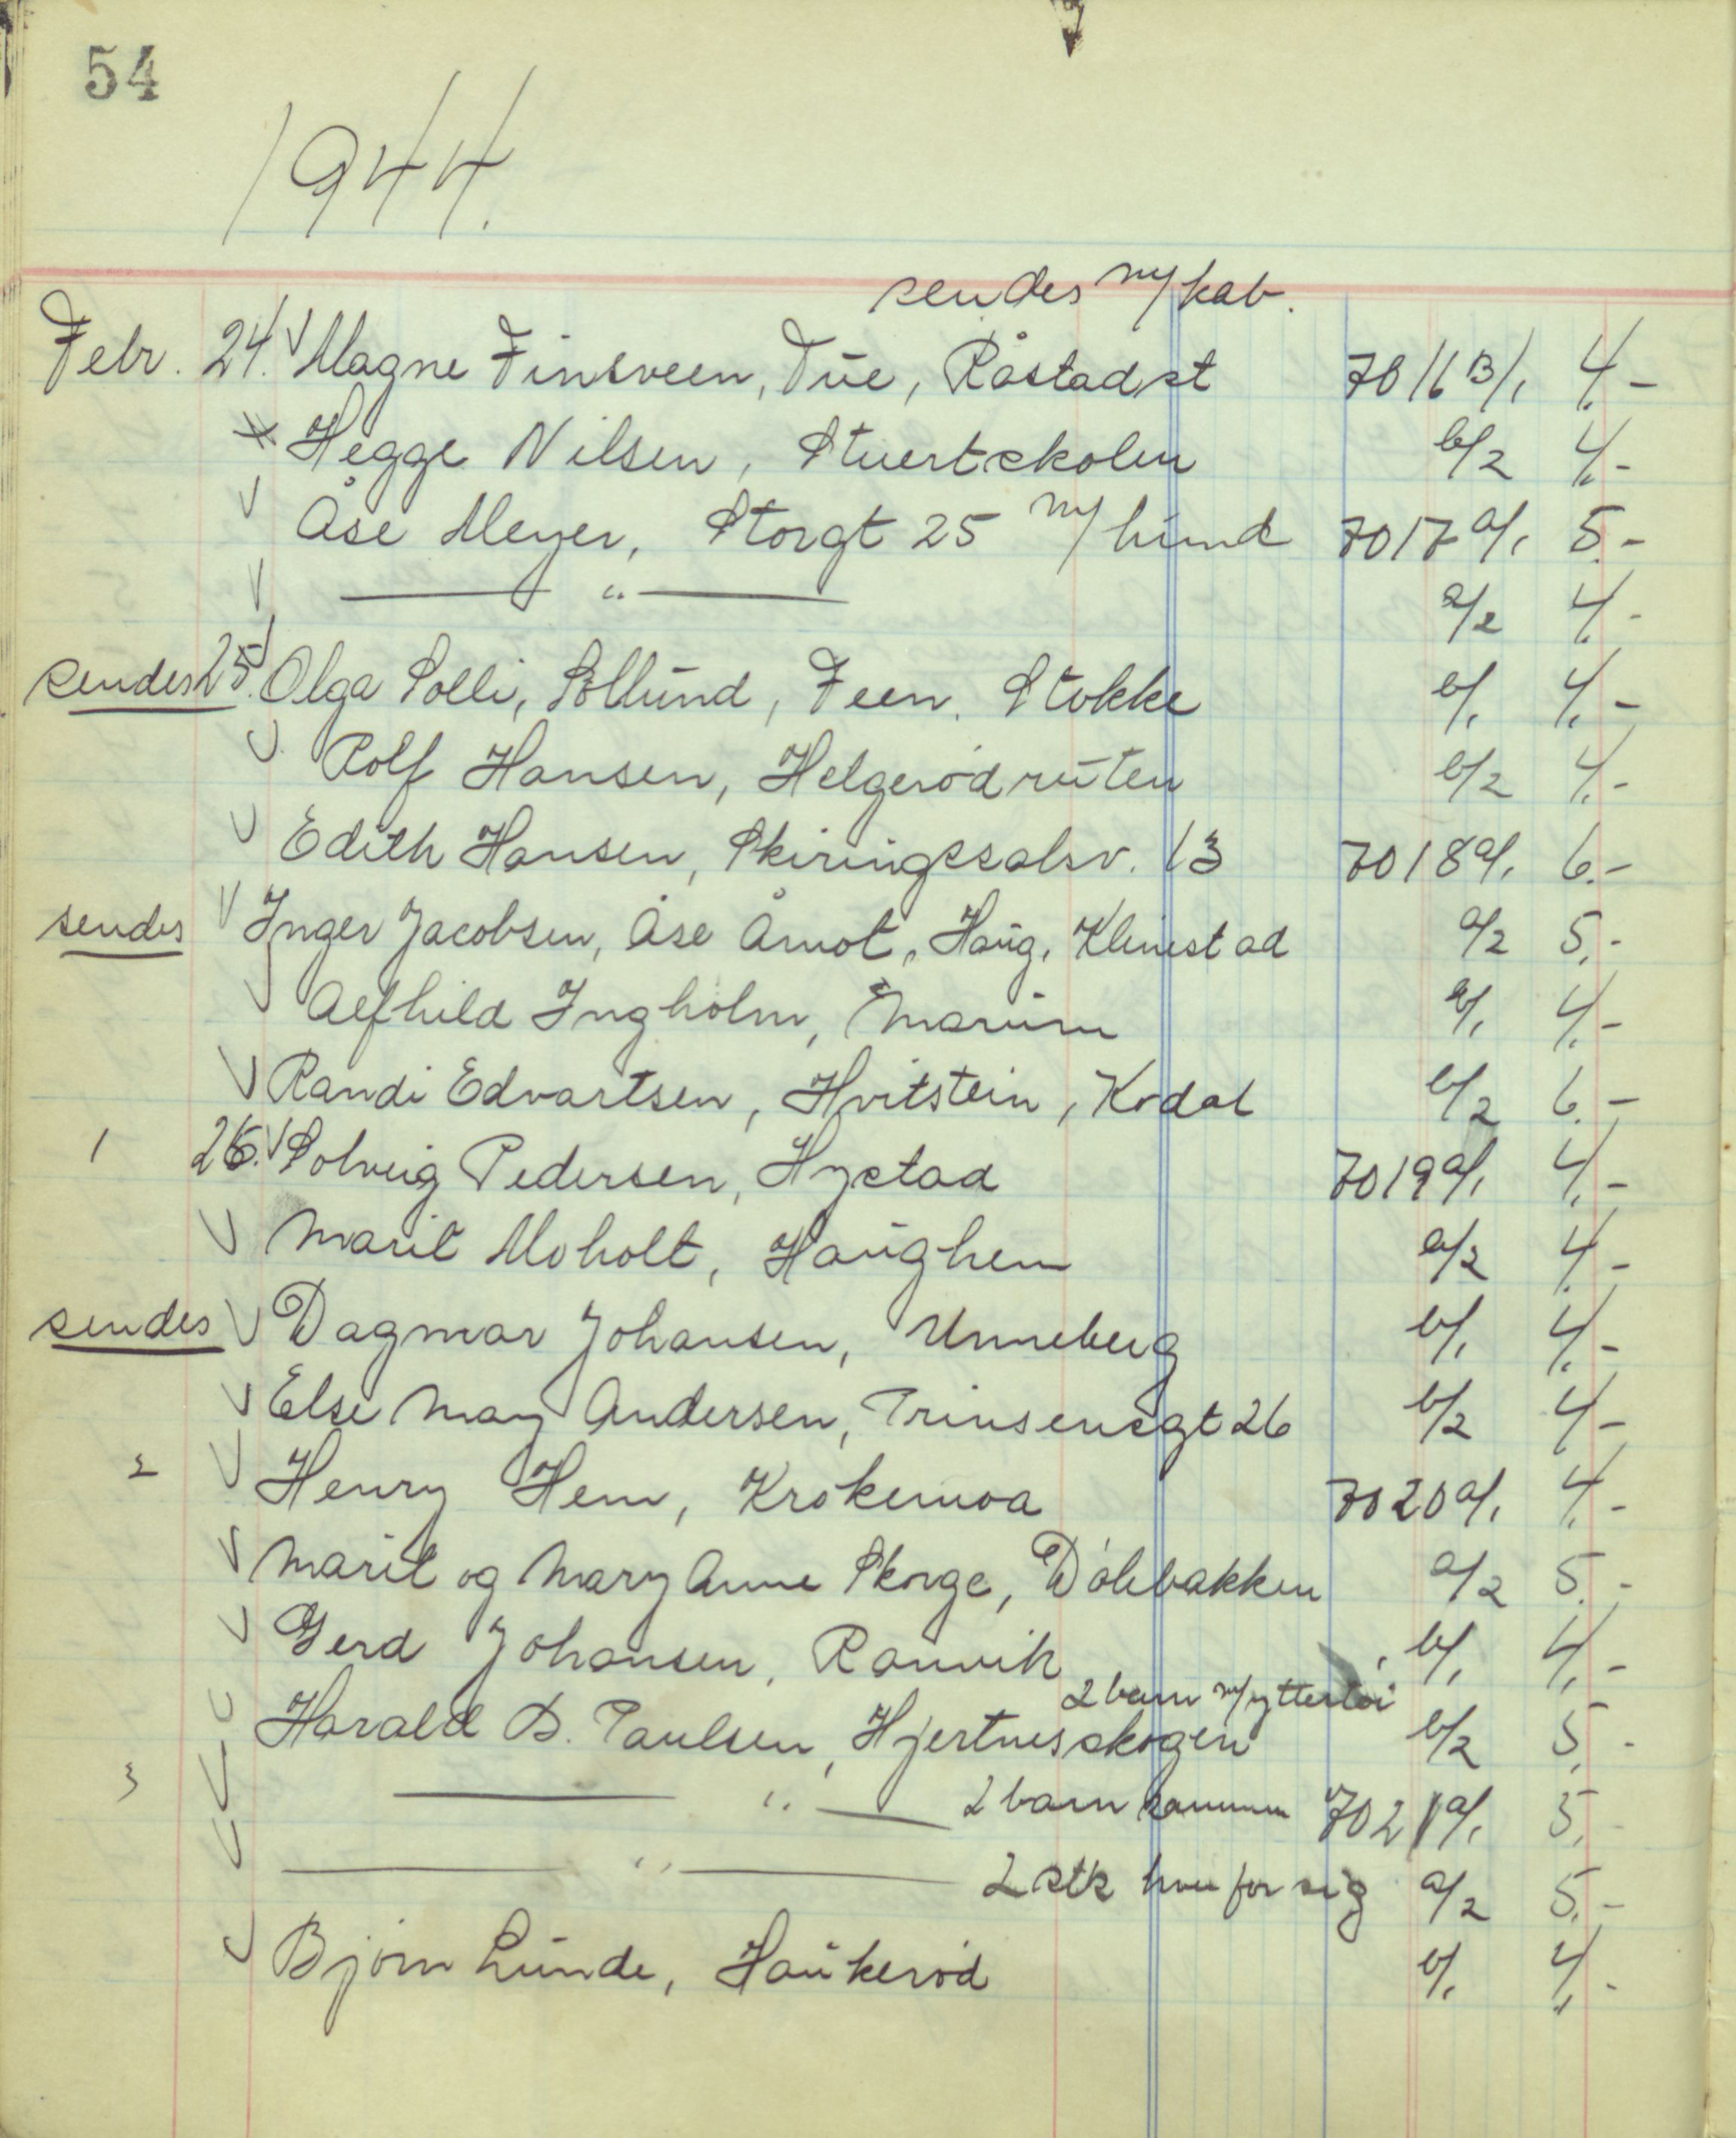 54
1944.
sendes m/kab.
Febr. 24. Magne Finsveen, Tue, Råstad st 7016 B/1 4.-
Hegge Nilsen, Stuertskolen b/2 4.-
Åse Meyer, Storgt 25 m/hund 7017 a/1 5.-
— " — a/2 4.-
sendes 25. Olga Solli, Sollund, Feen, Stokke b/1 4.-
Rolf Hansen, Helgerødruten b/2 4.-
Edith Hansen, Skiringssalsv. 13 7018 a/1 6.-
sendes Inger Jacobsen, Åse Åmot, Haug, Klinestad a/2 5.-
Alfhild Ingholm, Marum b/1 4.-
Randi Edvartsen, Hvitstein, Kodal b/2 6.-
1 26. Solveig Pedersen, Hystad 7019 a/1 4.-
Marit Moholt, Haughem a/2 4.-
sendes Dagmar Johansen, Unneberg b/1 4.-
Else May Andersen, Prinsensgt 26 b/2 4.-
2 Henry Hem, Krokemoa 7020 a/1 4.-
Marit og Mary Anne Skorge, Dølebakken a/2 5.-
Gerd Johansen, Ranvik b/1 4.-
2 barn m/yttertøi
Harald B. Paulsen, Hjertnesskogen b/2 5.-
3 — " — 2 barn sammen 7021 a/1 5.-
— " — 2 stk hver for sig a/2 5.-
Bjørn Lunde, Haukerød b/1 4.-